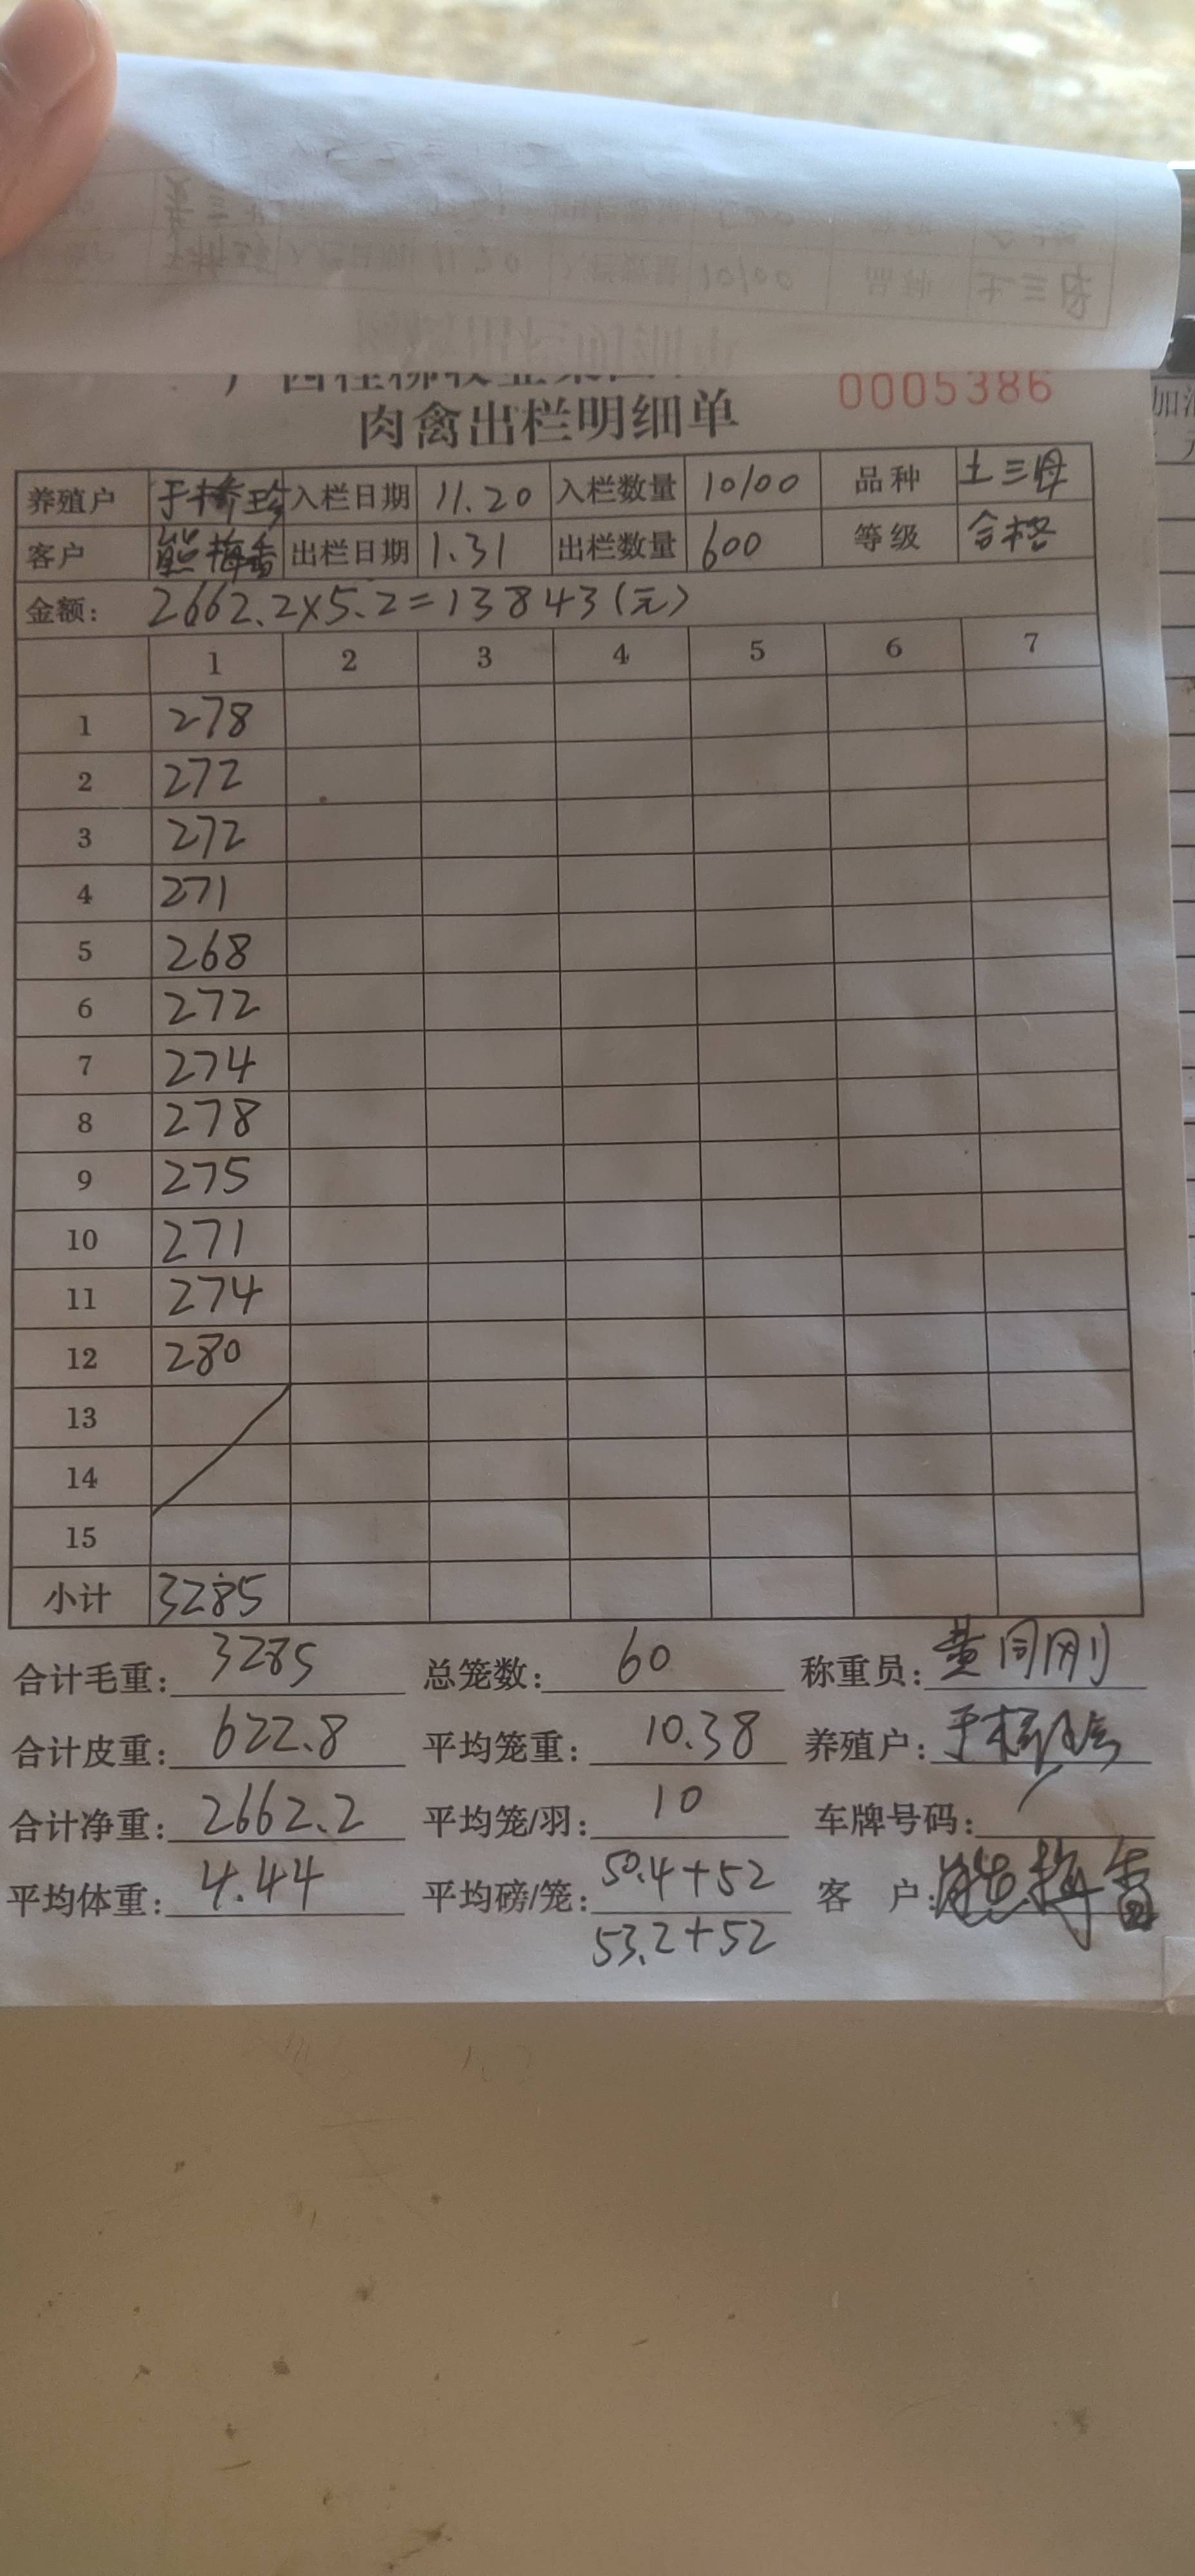 0005386
肉禽出栏明细单
养殖户 于梅珍 入栏日期 11.20 入栏数量 10100 品种 土三母
客户 熊梅香 出栏日期 1.31 出栏数量 600 等级 合格
金额: 2662.2×5.2=13843(元)
1 2 3 4 5 6 7
1 278
2 272
3 272
4 271
5 268
6 272
7 274
8 278
9 275
10 271
11 274
12 280
13
14
15
小计 3285
合计毛重: 3285 总笼数: 60 称重员: 黄同刚
合计皮重: 622.8 平均笼重: 10.38 养殖户:
合计净重: 2662.2 平均笼/羽: 10 车牌号码: /
平均体重: 4.44 平均磅/笼: 50.4+52 客 户: 熊梅香
53.2+52